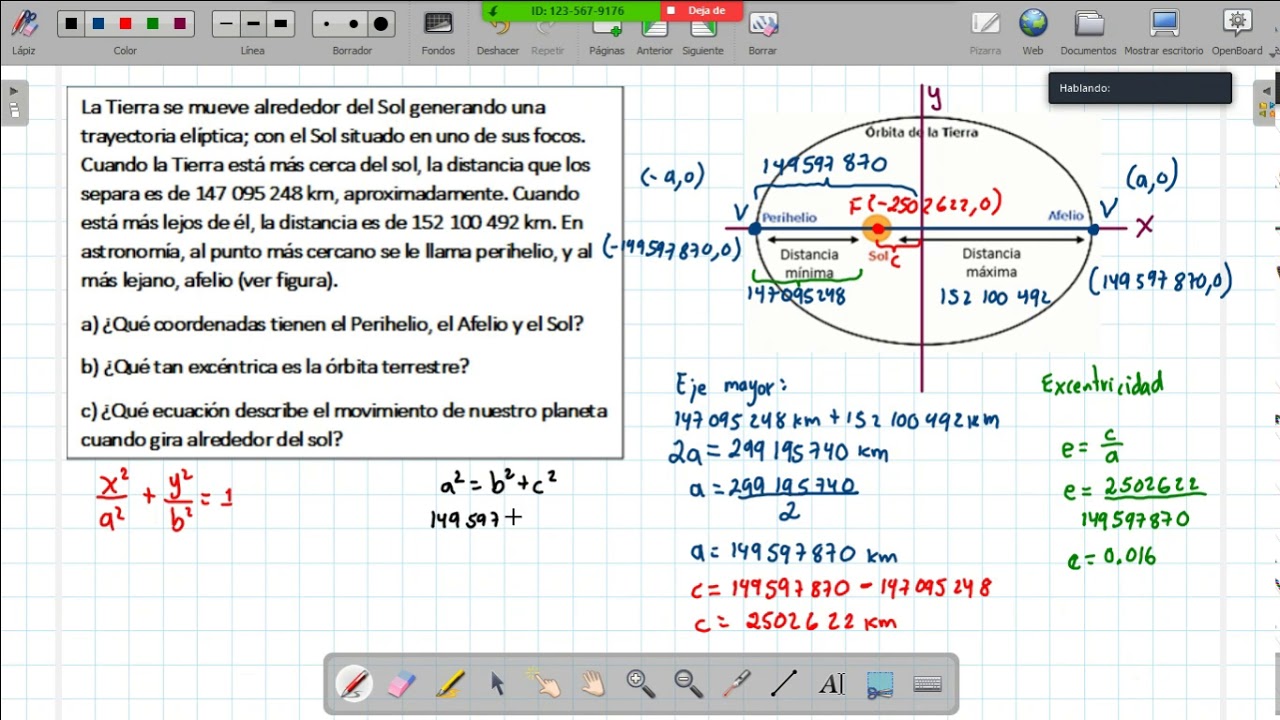 ID: 123-567-9176
Deja de
Lápiz
Color
Línea
Borrador
Fondos
Deshacer
Repetir
Páginas
Anterior
Siguiente
Borrar
Pizarra
Web
Documentos
Mostrar escritorio
OpenBoard
Hablando:
La Tierra se mueve alrededor del Sol generando una
trayectoria elíptica; con el Sol situado en uno de sus focos.
Cuando la Tierra está más cerca del sol, la distancia que los
separa es de 147 095 248 km, aproximadamente. Cuando
está más lejos de él, la distancia es de 152 100 492 km. En
astronomía, al punto más cercano se le llama perihelio, y al
más lejano, afelio (ver figura).
a) ¿Qué coordenadas tienen el Perihelio, el Afelio y el Sol?
b) ¿Qué tan excéntrica es la órbita terrestre?
c) ¿Qué ecuación describe el movimiento de nuestro planeta
cuando gira alrededor del sol?
y
Órbita de la Tierra
149597 870
(-a,0)
(a,0)
F(-2502622,0)
V
Perihelio
Afelio
V
X
(-149597870,0)
Distancia
mínima
Sol
c
Distancia
máxima
147095248
152 100 492
(149597870,0)
Eje mayor:
147 095 248 km + 152 100 492 km
2a = 299 195 740 km
a = 299 195 740
2
a = 149597870 km
c = 149597870 - 147095248
c = 2502622 km
Excentricidad
e = c/a
e = 2502622
149597870
e = 0.016
x²/a² + y²/b² = 1
a² = b² + c²
149 597